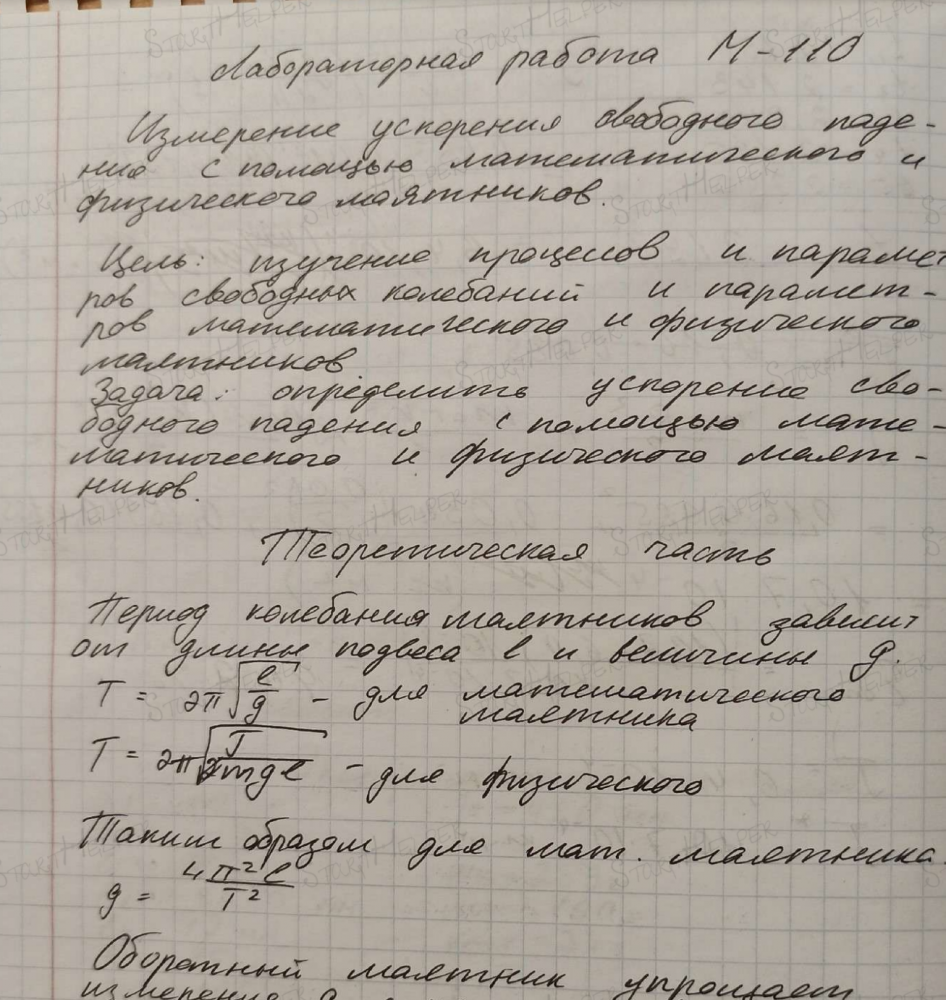 Лабораторная работа М-110
Измерение ускорения свободного паде-
ния с помощью математического и
физического маятников.
Цель: изучение процесов и парамет
ров свободных колебаний и парамет-
ров математического и физического
маятников
Задача: определить ускорение сво-
бодного падения с помощью мате-
матического и физического маят-
ников.
Теоретическая часть
Период колебания маятников зависит
от длины подвеса l и величины g.
T = 2π√(l/g) - для математического
маятника
T = 2π√(J/mgl) - для физического
Таким образом для мат. маятника:
g = 4π²l/T²
Оборотный маятник упрощает
измерение